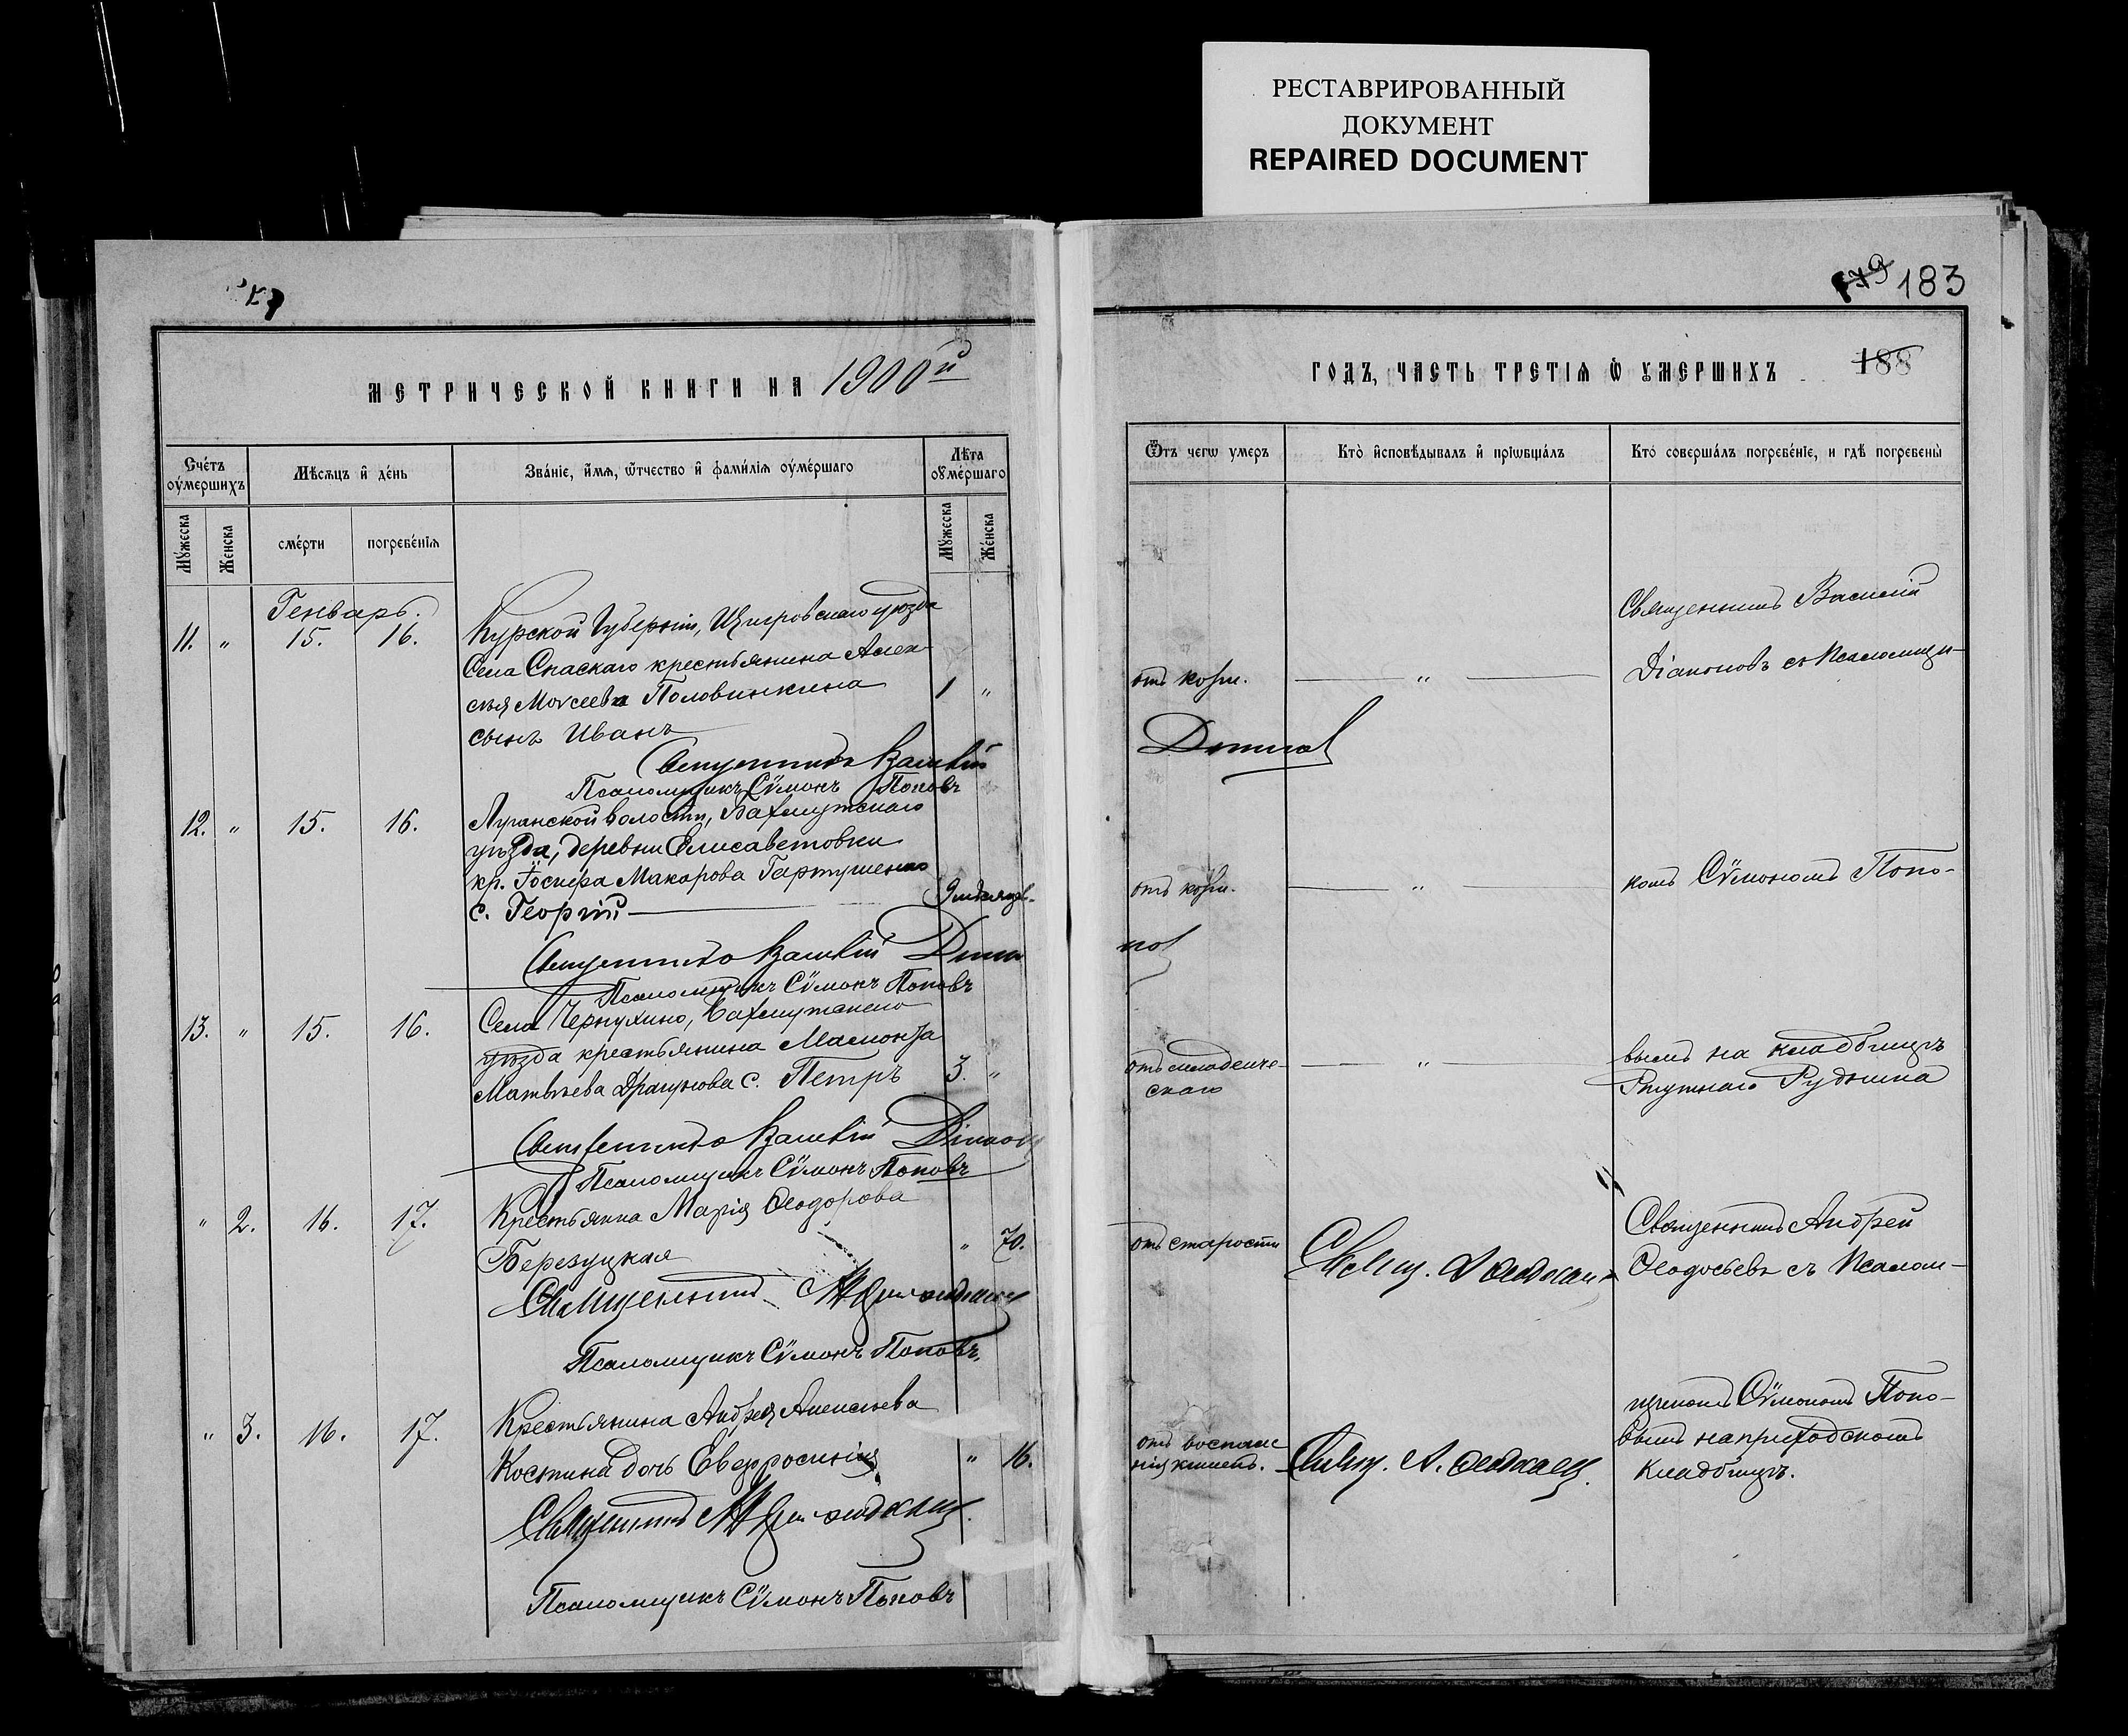 РЕСТАВРИРОВАННЫЙ
ДОКУМЕНТ
REPAIRED DOCUMENT
179 183
МЕТРИЧЕСКОЙ КНИГИ НА 1900й
ГОДЪ, ЧАСТЬ ТРЕТІѦ Ѡ ОУМЕРШИХЪ
188
Счетъ оумершихъ
Мѣсѧцъ и день
Званіе, имѧ, ѿчество и фамиліѧ оумершаго
Лѣта оумершаго
Ѿтъ чегѡ умеръ
Кто исповѣдывалъ и пріѡбщалъ
Кто совершалъ погребеніе, и гдѣ погребены
Мужеска
Женска
смерти
погребеніѧ
Мужеска
Женска
Генварь.
11. " 15. 16.
Курской Губерніи, Щигровскаго уѣзда
Села Спаскаго крестьянина Алек
сѣя Моѵсеева Половинкина 1 "
сынъ Иванъ
отъ кори. "
Священникъ Василій
Діаконовъ съ Псаломщи-
Священникъ Василій
Псаломщикъ Сѵмонъ Поповъ
12. " 15. 16.
Луганской волости, Бахмутскаго
уѣзда, деревни Елисаветовки
кр. Іосифа Макарова Гартушенко
с. Георгій 9 мѣсяцев.
отъ кори. "
комъ Сѵмономъ Попо-
Священникъ Василій
Псаломщикъ Сѵмонъ Поповъ
13. " 15. 16.
Села Чернухино, Бахмутскаго
уѣзда крестьянина Мамонта
Матвѣева Драгунова с. Петръ 3. "
отъ младенче-
скаго "
вымъ на кладбищѣ
Ртутнаго Рудника
Священникъ Василій
Псаломщикъ Сѵмонъ Поповъ
" 2. 16. 17.
Крестьянка Марія Ѳеодорова
Березуцкая " 70.
отъ старости
Священникъ Андрей
Ѳеодосьевъ съ Псалом-
Священникъ
Псаломщикъ Сѵмонъ Поповъ.
" 3. 16. 17.
Крестьянина Андрея Алексѣева
Костина дочь Евфросинія " 16.
отъ воспале
нія кишекъ.
щикомъ Сѵмономъ Попо-
вымъ на приходскомъ
кладбищѣ.
Священникъ
Псаломщикъ Сѵмонъ Поповъ